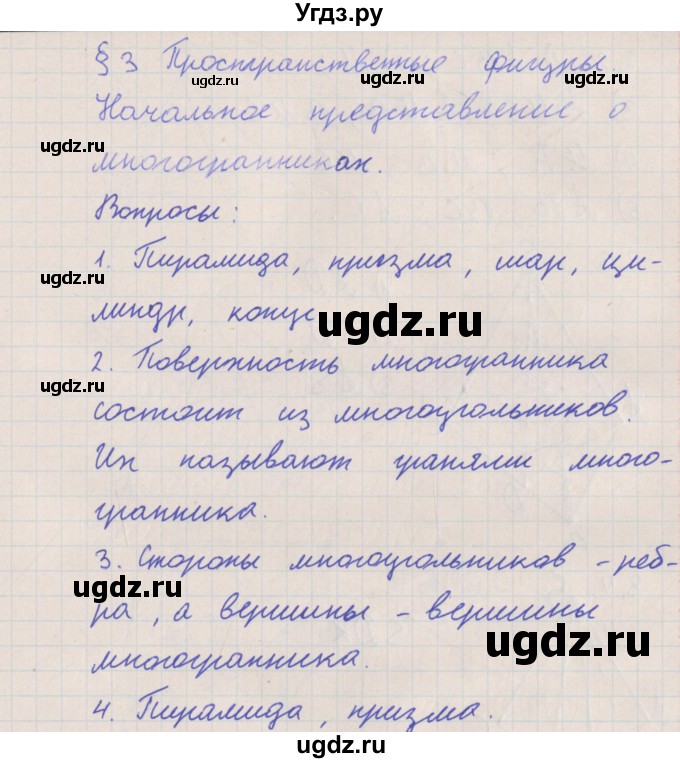 Угдз.ру
§ 3 Пространственные фигуры.
ugdz.ru ugdz.ru
Начальное представление о
ugdz.ru ugdz.ru
многогранниках.
Вопросы:
1. Пирамида, призма, шар, ци-
ugdz.ru
линдр, конус
ugdz.ru
2. Поверхность многогранника
ugdz.ru
состоит из многоугольников.
Их называют гранями много-
гранника.
3. Стороны многоугольников - реб-
ugdz.ru
ра, а вершины - вершины
ugdz.ru
многогранника.
4. Пирамида, призма.
ugdz.ru
ugdz.ru